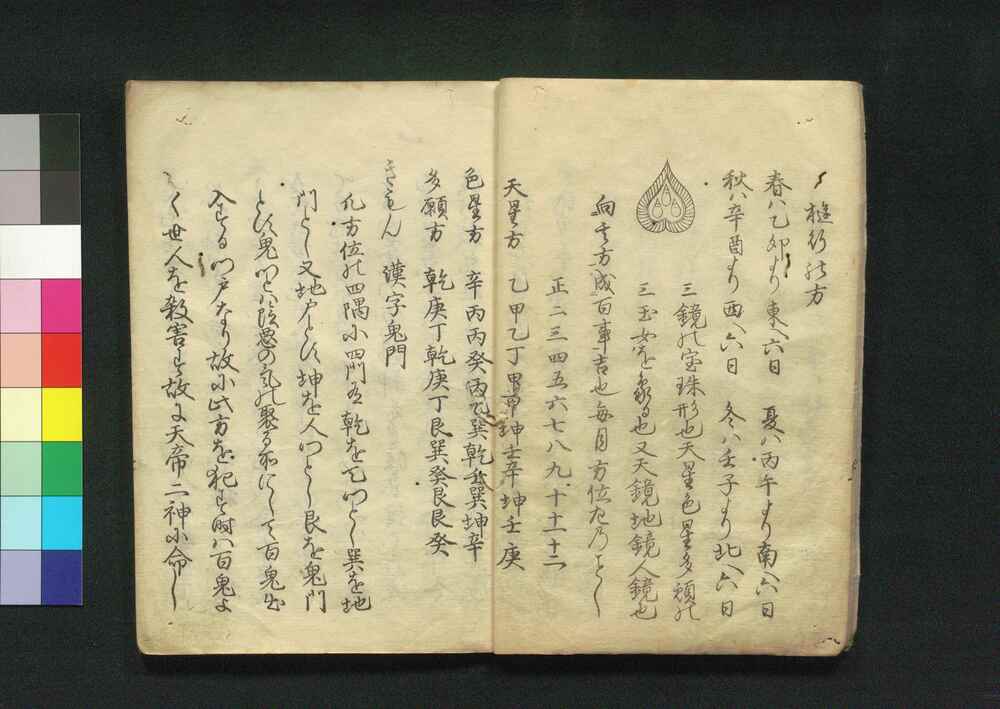 遊行の方
春ハ乙卯より東へ六日　夏ハ丙午より南へ六日
秋ハ辛酉より西へ六日　冬ハ壬子より北へ六日
三鏡の宝珠形也天星色星多願の
三玉女を象る也又天鏡地鏡人鏡也
向其方成百事吉也毎月方位左のことし
正二三四五六七八九十十一十二
天星方　乙甲乙丁甲甲坤壬辛坤壬庚
色星方　辛丙丙癸丙乙巽乾壬巽坤辛
多願方　乾庚丁乾庚丁艮巽癸艮艮癸
きもん　漢字鬼門
凡方位の四隅に四門有乾を天門とし巽を地
門とし又地戸とす坤を人門とし艮を鬼門
とす鬼門とハ陰悪の気の聚る所にして百鬼出
入する門戸なり故に此方を犯す時ハ百鬼よ
く世人を殺害す故に天帝二神に命し